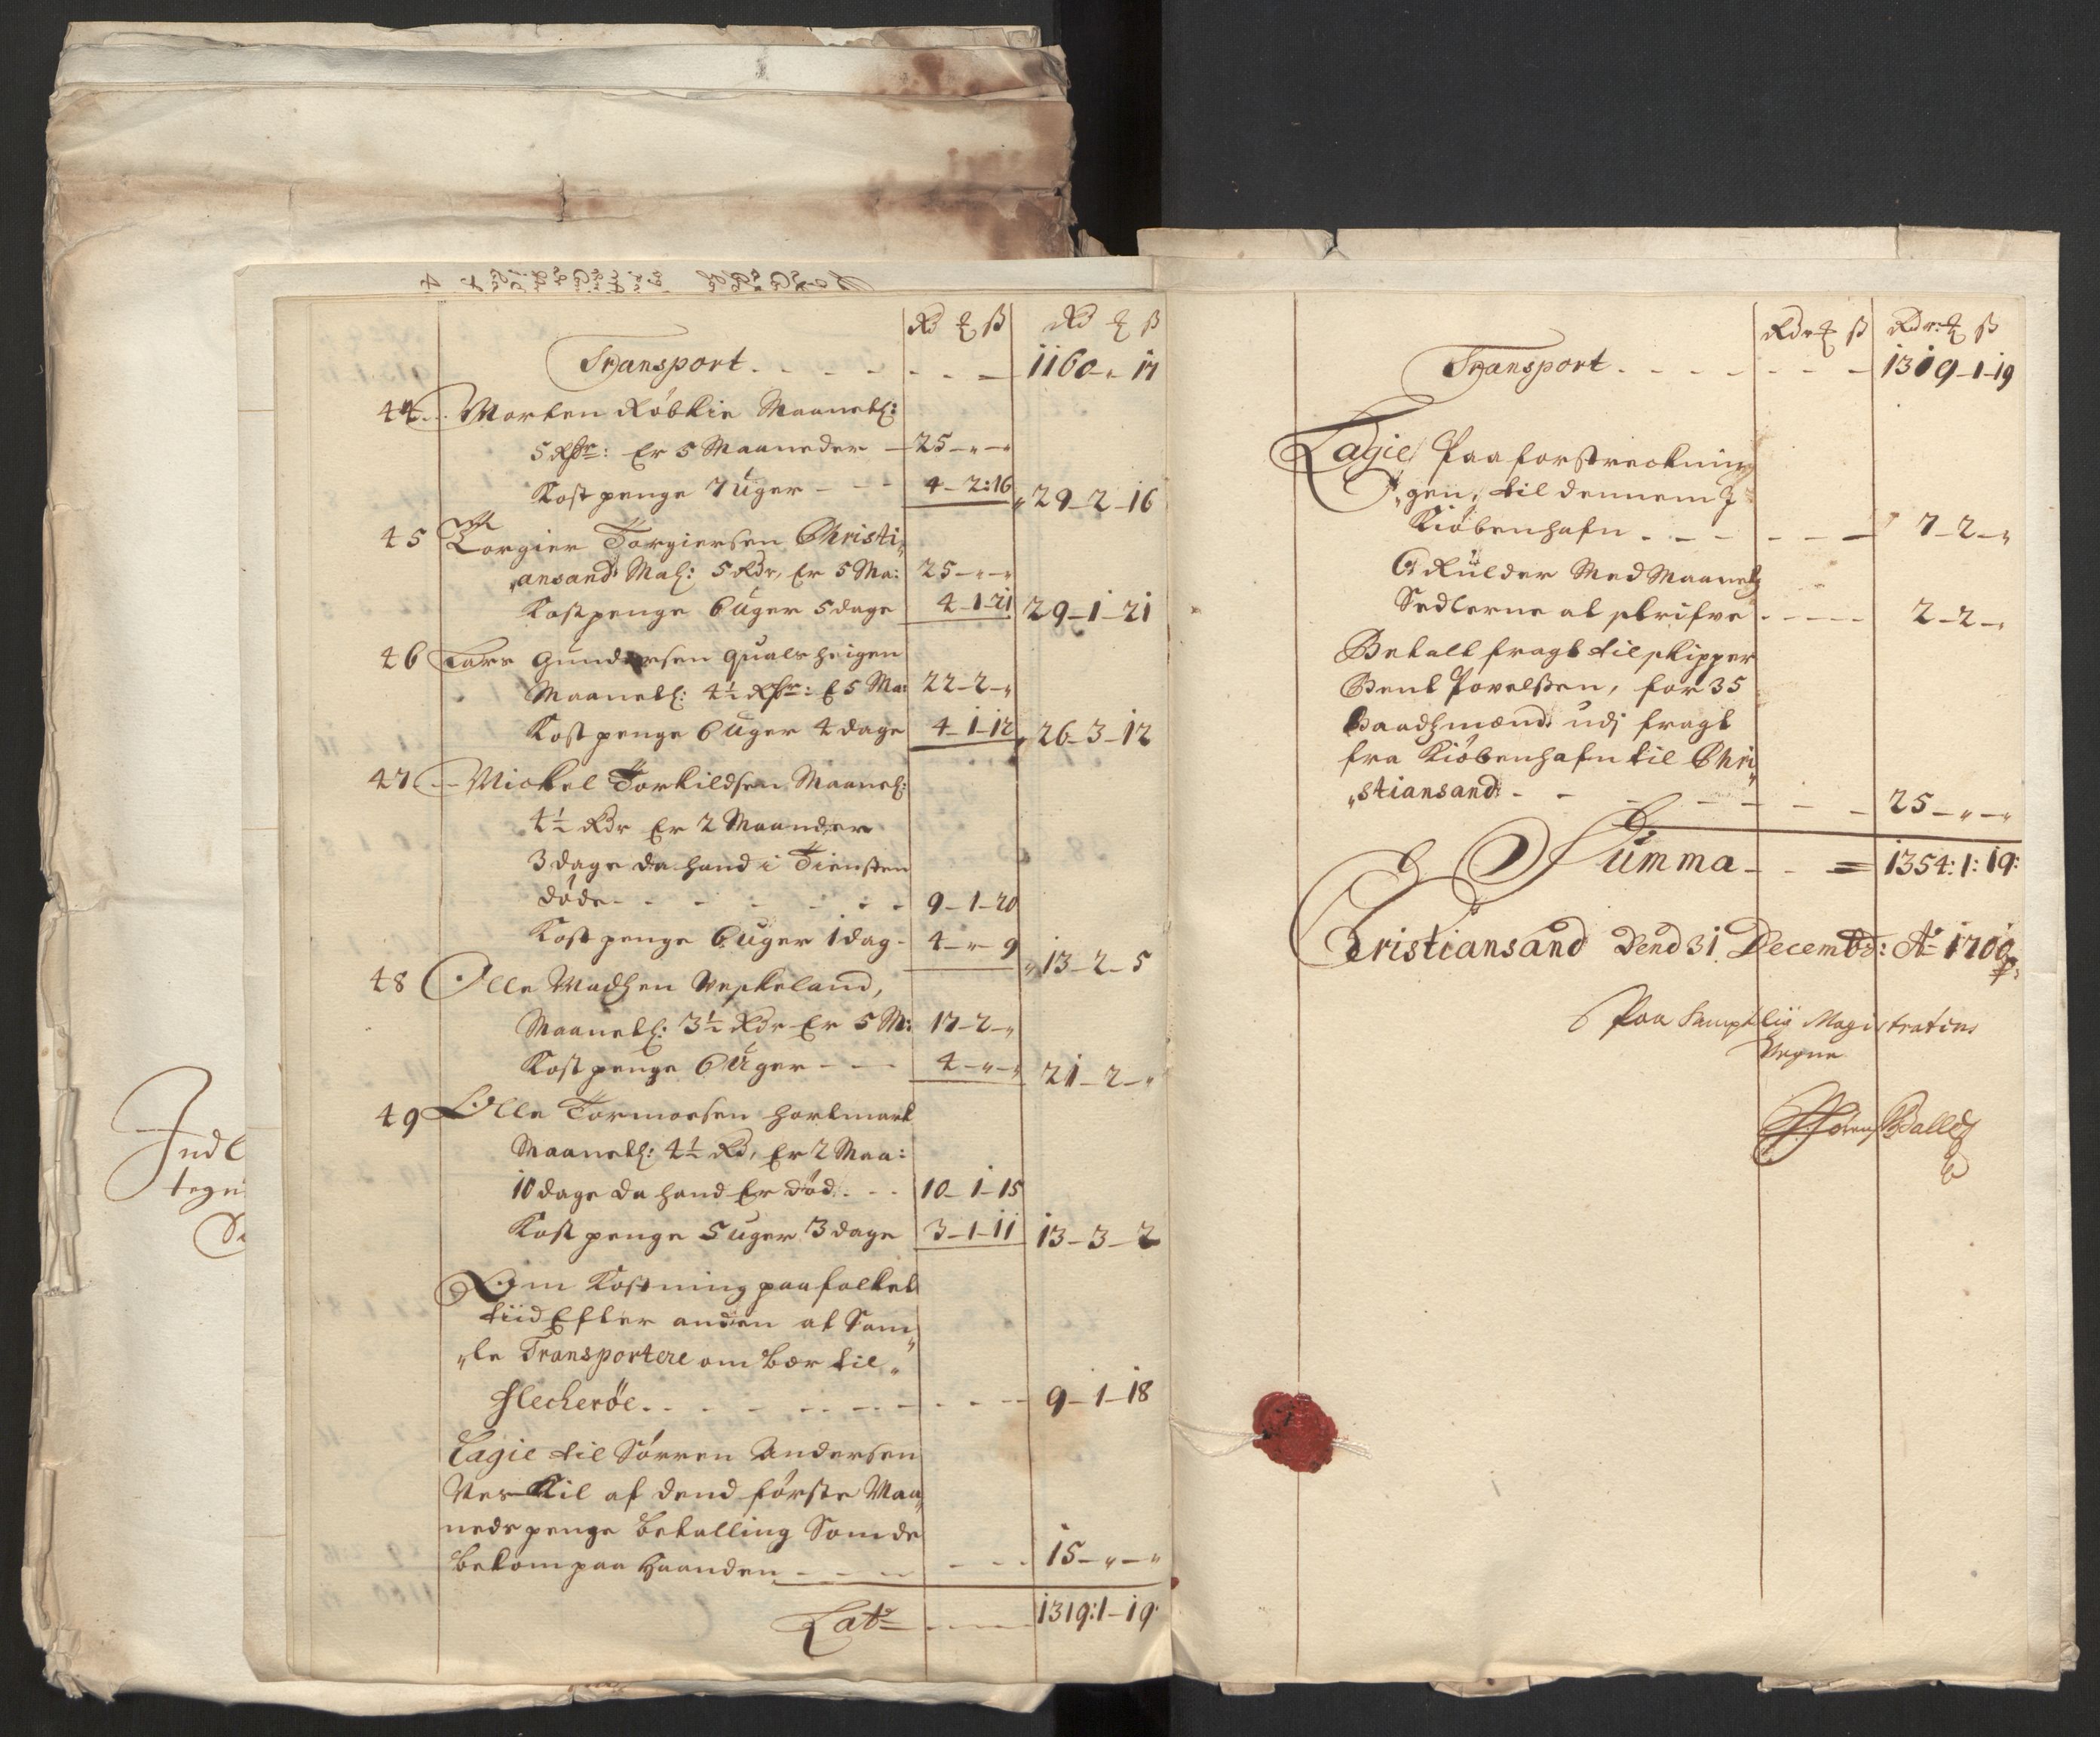 Rd ꝶ ß Rd ꝶ ß
Transport . . . . 1160 - „ 17
44 Morten Röbkie Maanetl:
5 Rdr: Er 5 Maaneder — 25 - „ - „
Kost penge 7 uger - - - 4 - 2: 16 29 - 2 - 16
45 Torgier Torgiersen Christi„
„ansand Mal: 5 Rdr, Er 5 Ma: 25 - „ - „
Kostpenge 6 uger 5 dage 4 - 1 - 21 29 - 1 - 21
46 Lars Gundersen Qualsheigen
Maanetl: 4½ Rdr: E 5 Ma: 22 - 2 - „
Kost penge 6 uger 4 dage 4 - 1 - 12 26 - 3 - 12
47 Mickel Torkildsen Maanetl:
4½ Rdr Er 2 Maander
3 dage da hand i Tiensten
döde - - - - - - 9 - 1 - 20
Kost penge 6 uger 1 dag - 4 - „ - 9 13 - 2 - 5
48 Olle Madhen Veskeland,
Maanetl: 3½ Rdr Er 5 M: 17 - 2 - „
Kost penge 6 uger - - - 4 - „ - „ 21 - 2 - „
49 Olle Tormoesen Hortmark
Maanetl: 4½ Rd, Er 2 Maa:
10 dage da hand Er död . - - 10 - 1 - 15
Kost penge 5 uger 3 dage 3 - 1 - 11 13 - 3 - 2
Om Kostning paa folket
tiid Efter anden at Sam„
„le Transportere om bor til„
Fleckeröe . . - - - - - 9 - 1 - 18
Lagie til Sörren Andersen
af dend förste Maa„
neds penge betalling Som de
bekom paa Haanden - - - 15 - „ - „
Lat: - - - - 1319: 1 - 19:
Indl
tegn
Rdr ꝶ ß Rdr: ꝶ ß
Transport . - - - - - - 1319 - 1 - 19
Lagie Paa forstreckning„
„gen, til dennem J
Kiöbenhafn . - - - - - 7 - 2 - „
6 Rulder Med Maanetz
Sedlerne at skrifve - - - - 2 - 2 - „
Betalt fragt til skipper
Bent Povelssen, for 35
Baadzmænd udj fragt
fra Kiöbenhafn til Chri„
„stiansand - - - - - - 25 - „ - „
Summa - - = 1354: 1: 19:
Christiansand Dend 31 Decembr: Ao 1700
Paa Samptlig Magistratens
Vegne
Sörens Balle